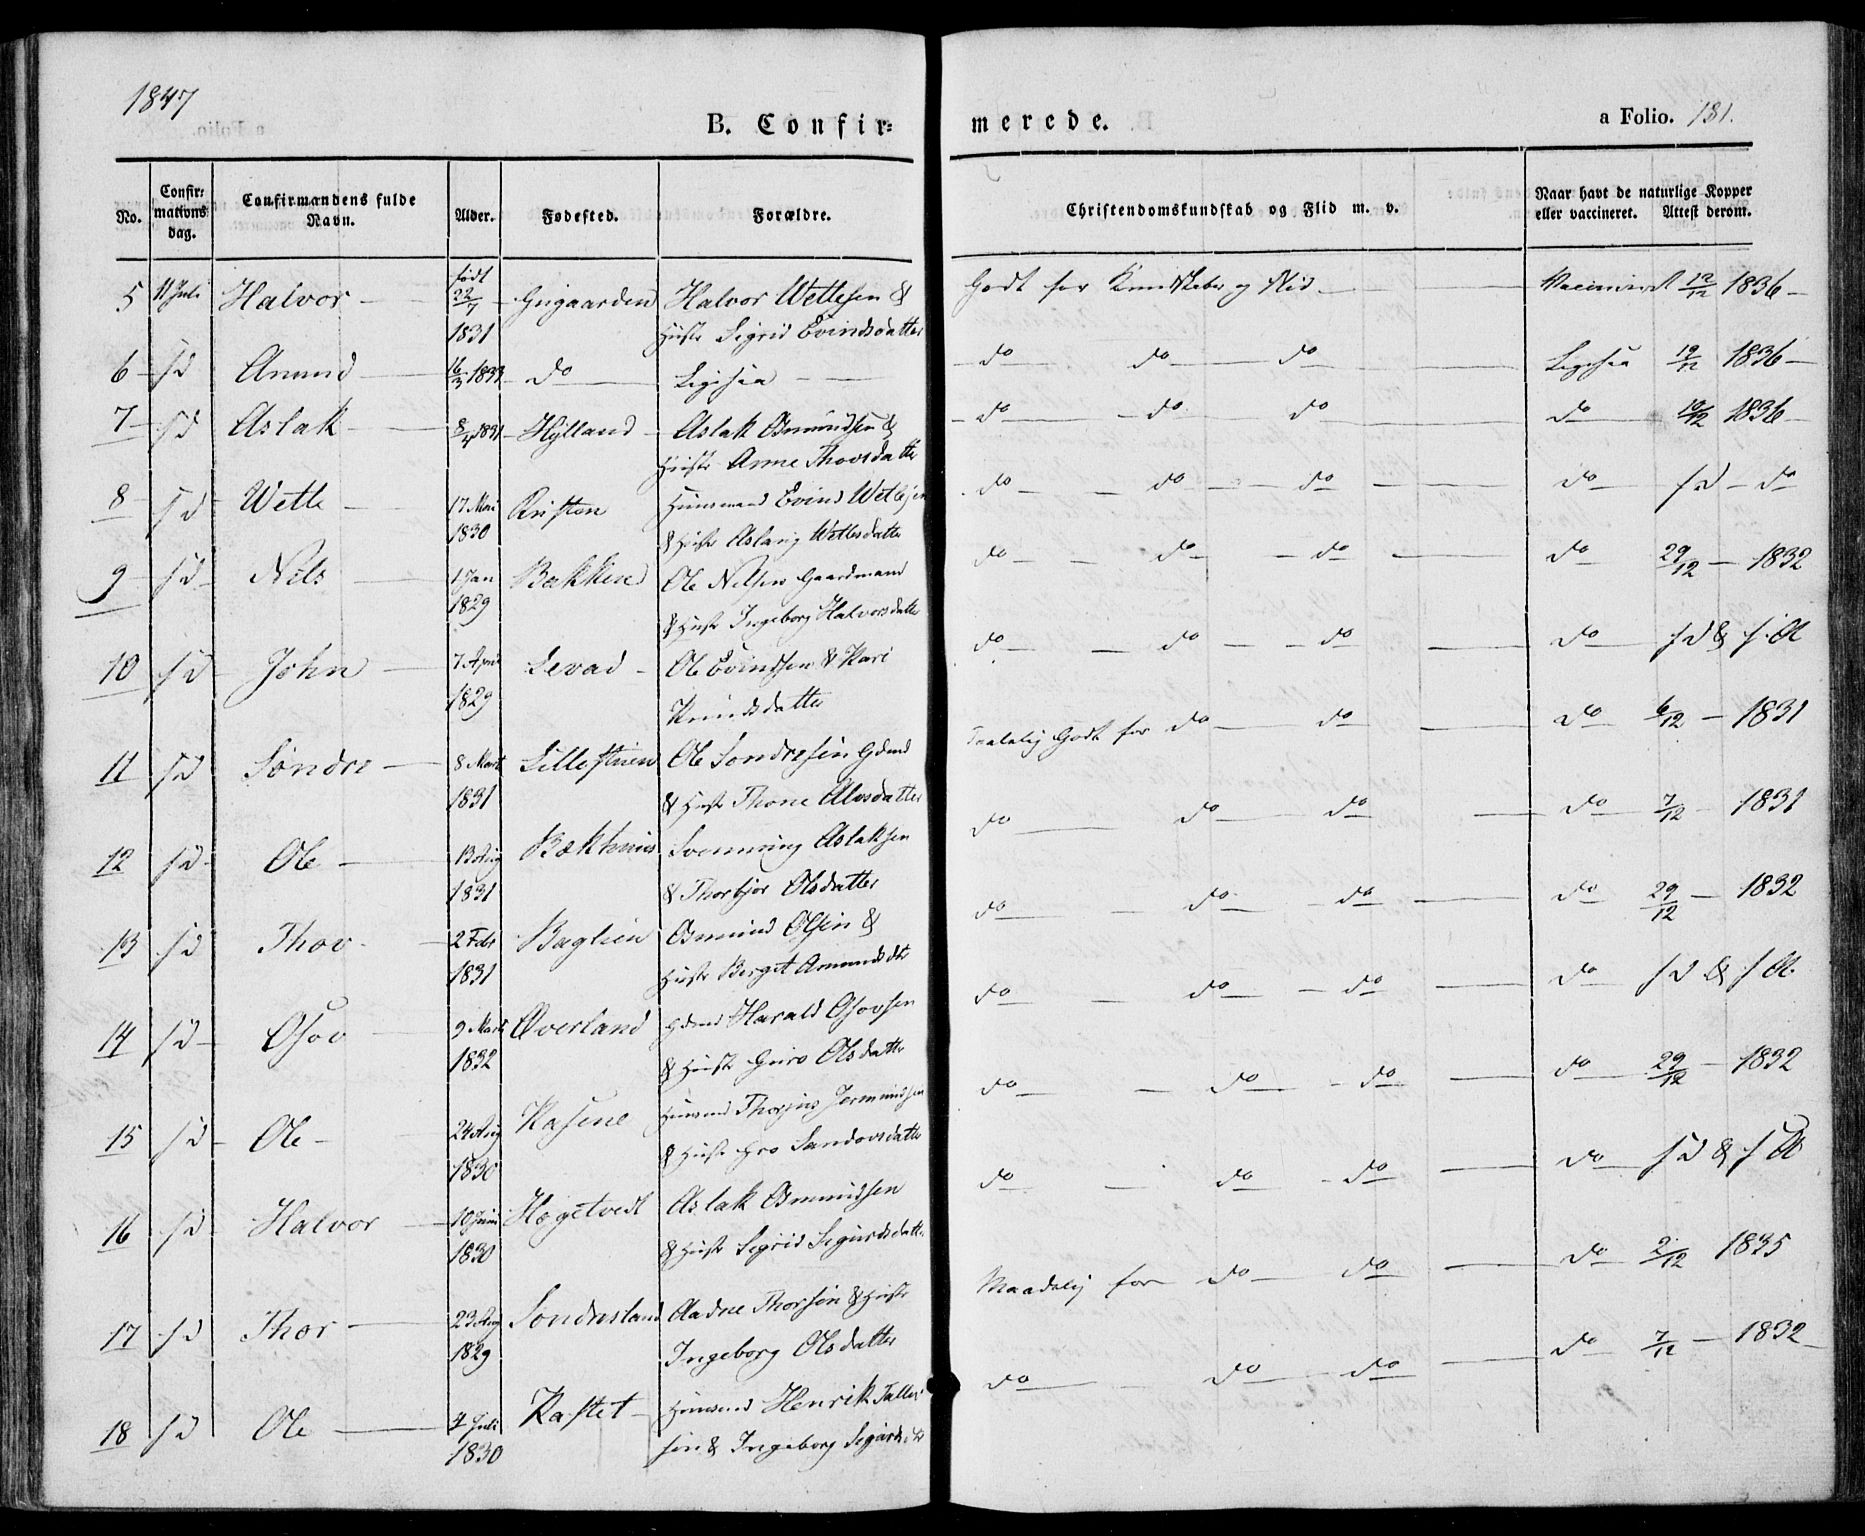 1847
B. Confir=
merede.
a Folio. 181.
No.
Confir=
mations
dag.
Confirmandens fulde
Navn.
Alder.
Fødested.
Forældre.
Christendomskundskab og Flid m. v.
Naar havt de naturlige Kopper
eller vaccineret. Attest derom.
5 11 Juli Halvor født 22/7 1831 Halvor Wetlesen &
Hustr Sigrid Evindsdatter
Godt for Kundskaber og Flid
Vaccineret 12/12 1836
6 sd Amund 16/3 1833 do Ligesaa
do do do Ligesaa 12/12 1836
7 sd Aslak 8/4 1831 Hylland Aslak Osmundsen &
Hustr Anne Thovsdatter
do do do do 12/12 1836
8 sd Wetle 17 Mai 1830 Huusmand Evind Wetlesen
& Hustr Aslaug Wetlesdatter
do do do do sd do
9 sd Nils 1 Jan 1829 Bakken Ole Nilsen Gaardmand
& Hustr Ingeborg Halvorsdatter
do do do do 29/12 1832
10 sd John 7 April 1829 Levad Ole Evindsen & Kari
Knudsdatter
do do do do sd & s A
11 sd Søndre 8 Marts 1831 Ole Søndresen Gdmd
& Hustr Thone Alvsdatter
Taalelig Godt for do do do 6/12 1831
12 sd Ole 13 Aug 1831 Bækhuus Svenning Aslaksen
& Thorbjør Olsdatter
do do do do 7/12 1831
13 sd Thov 2 Febr 1831 Baglien Osmund Olsen &
Hustr Berget Amundsdtr
do do do do 29/12 1832
14 sd Osov 9 Marts 1832 Øverland Gdmd Harald Osovsen
& Hustr Guro Olsdatter
do do do do sd & s A.
15 sd Ole 24 Aug 1830 Huusmd Jermundsen
& Hustr Gro Sandovsdatter
do do do do 29/12 1832
16 sd Halvor 10 Juni 1830 Høgetvedt Aslak Osmundsen
& Hustr Sigrid Sigurdsdatter
do do do do sd & s A
17 sd Thor 23 Aug 1829 Sondresland Aadne Thorsen & Hustr
Ingeborg Olsdatter
Maadelig for do do do 2/12 1835
18 sd Ole 4 Juli 1830 Kastet Huusmd Henrik Tallev
sen & Ingeborg Sigurdsdtr
do do do do 7/12 1832